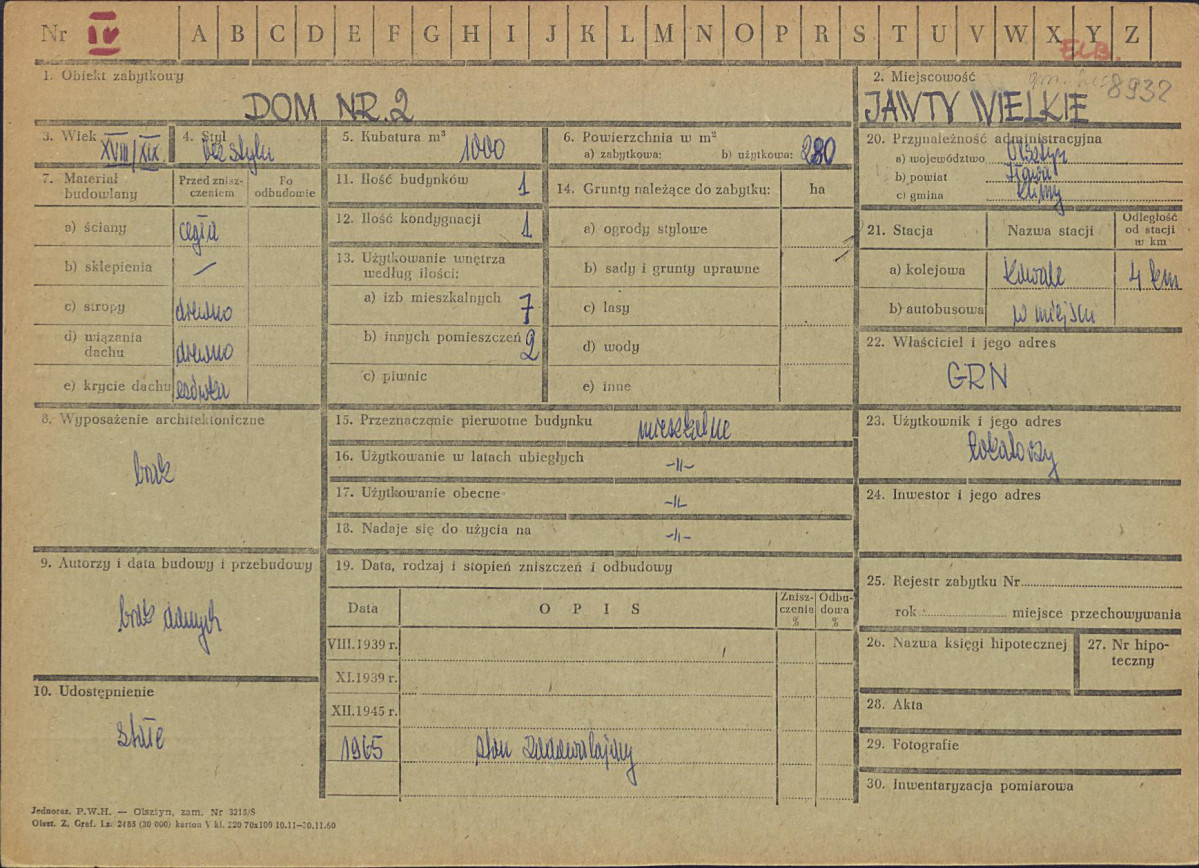 Nr IV A B C D E F G H I J K L M N O P R S T U V W X Y Z
ELB.
8932
1. Obiekt zabytkowy
DOM NR. 2
2. Miejscowość
JAWTY WIELKIE
3. Wiek XVIII/XIX
4. Styl bez stylu
5. Kubatura m³ 1000
6. Powierzchnia w m²
a) zabytkowa: b) użytkowa: 280
20. Przynależność administracyjna
a) województwo Olsztyn
b) powiat Iława
c) gmina
7. Materiał budowlany
Przed zniszczeniem
Po odbudowie
a) ściany cegła
b) sklepienia —
c) stropy drewno
d) wiązania dachu drewno
e) krycie dachu
11. Ilość budynków 1
12. Ilość kondygnacji 1
13. Użytkowanie wnętrza
według ilości:
a) izb mieszkalnych 7
b) innych pomieszczeń 2
c) piwnic
14. Grunty należące do zabytku: ha
a) ogrody stylowe
b) sady i grunty uprawne
c) lasy
d) wody
e) inne
21. Stacja
Nazwa stacji
Odległość od stacji w km
a) kolejowa Kowale 4 km
b) autobusowa w miejscu
22. Właściciel i jego adres
GRN
8. Wyposażenie architektoniczne
brak
15. Przeznaczenie pierwotne budynku mieszkalne
16. Użytkowanie w latach ubiegłych -II-
17. Użytkowanie obecne -II-
18. Nadaje się do użycia na -II-
23. Użytkownik i jego adres
lokatorzy
24. Inwestor i jego adres
9. Autorzy i data budowy i przebudowy
brak danych
10. Udostępnienie
stałe
19. Data, rodzaj i stopień zniszczeń i odbudowy
Data
OPIS
Zniszczenia %
Odbudowa %
VIII.1939 r.
XI.1939 r.
XII.1945 r.
1965 stan zadawalający
25. Rejestr zabytku Nr
rok miejsce przechowywania
26. Nazwa księgi hipotecznej
27. Nr hipoteczny
28. Akta
29. Fotografie
30. Inwentaryzacja pomiarowa
Jednoraz. P.W.H. — Olsztyn, zam. Nr 3215/S
Olszt. Z. Graf. Lz. 2485 (30 000) karton V kl. 220 70x100 10.11—30.11.60